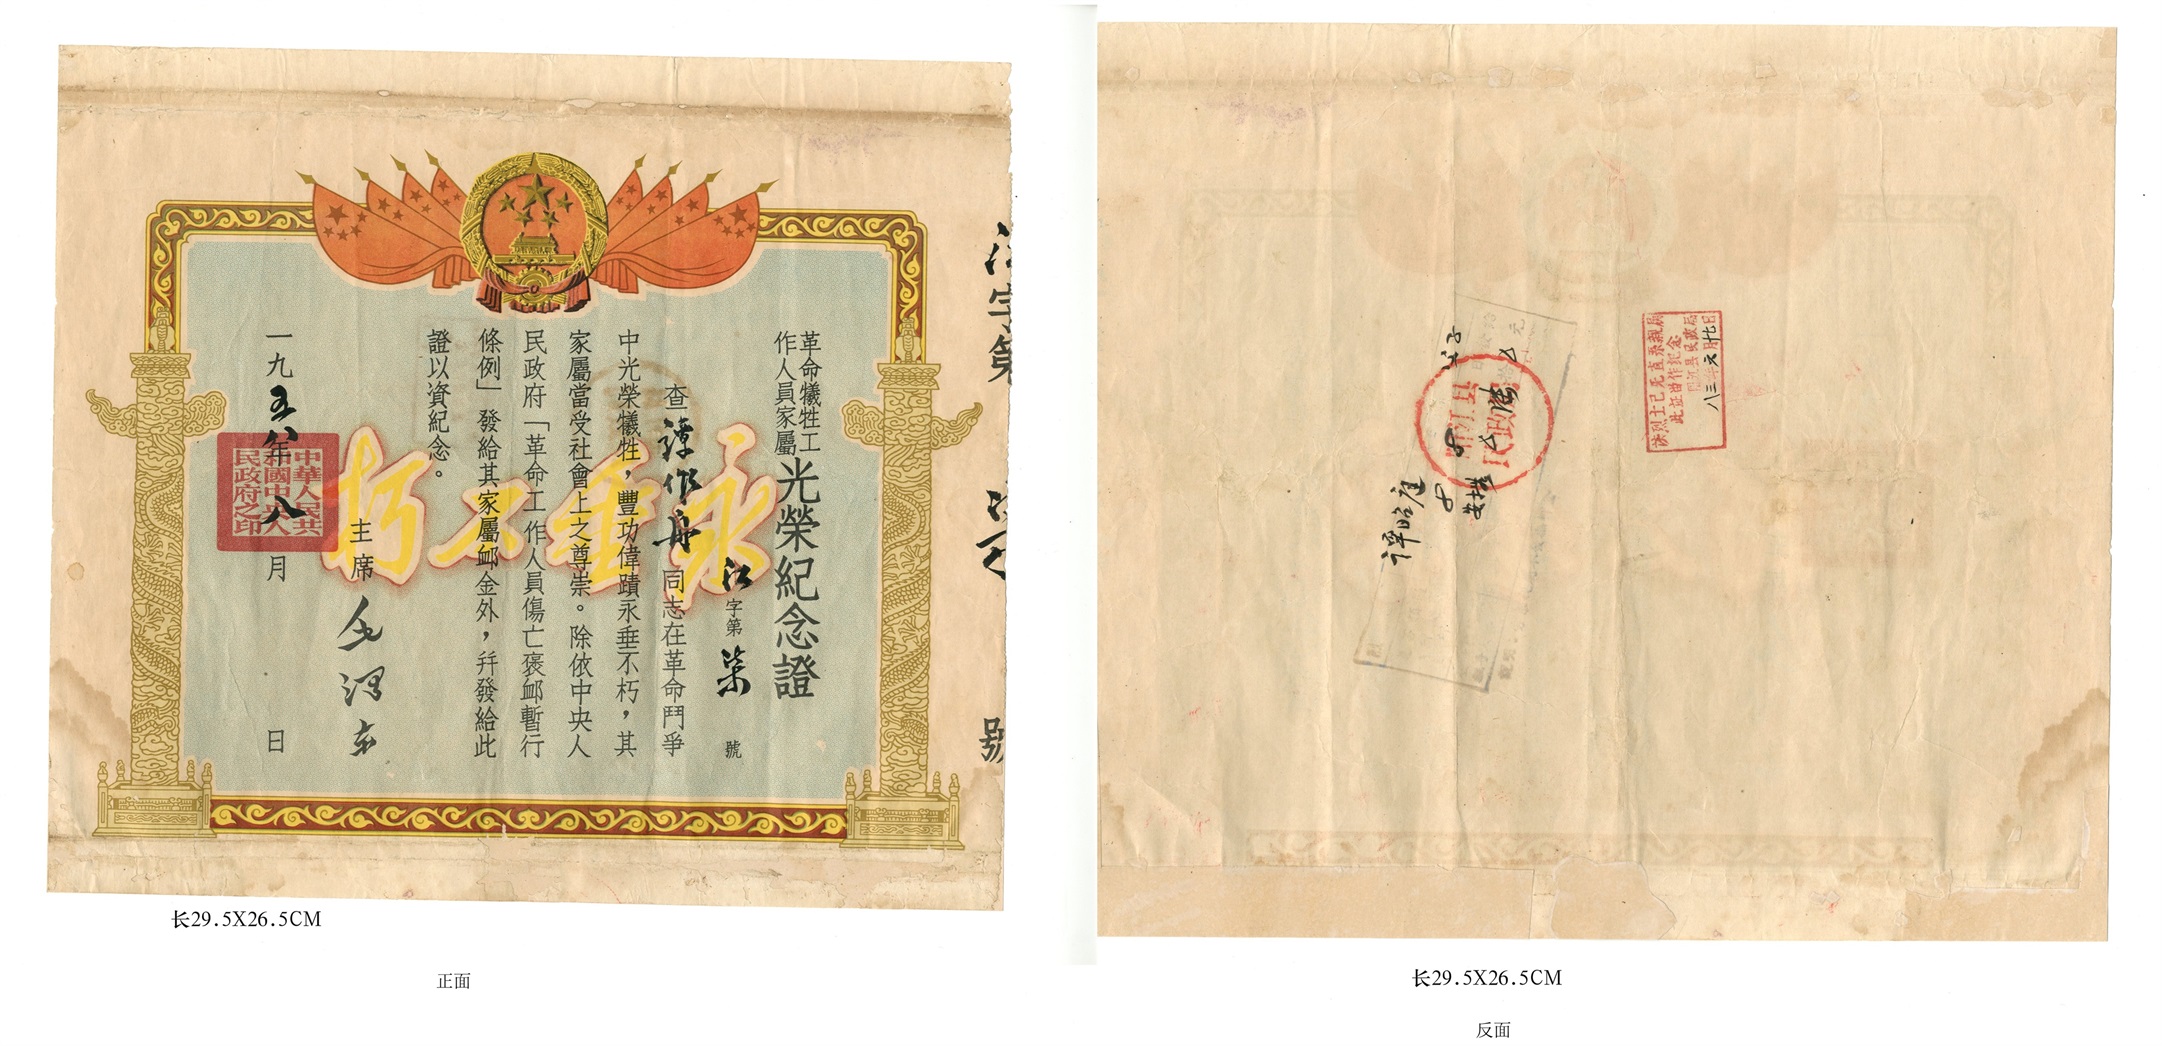 革命犧牲工
作人員家屬
光榮紀念證
字第柒號
查譚作舟同志在革命鬥爭
中光榮犧牲,豐功偉蹟永垂不朽,其
家屬當受社會上之尊崇。除依中央人
民政府「革命工作人員傷亡褒卹暫行
條例」發給其家屬卹金外,幷發給此
證以資紀念。
主席 毛澤東
一九五八年八月 日
中華人民共
和國中央人
民政府之印
永垂不朽
字第
號
长29.5X26.5CM
正面
民政局
该烈士已无直系亲属
此证留作纪念
县民政局
八三年六月十七日
长29.5X26.5CM
反面